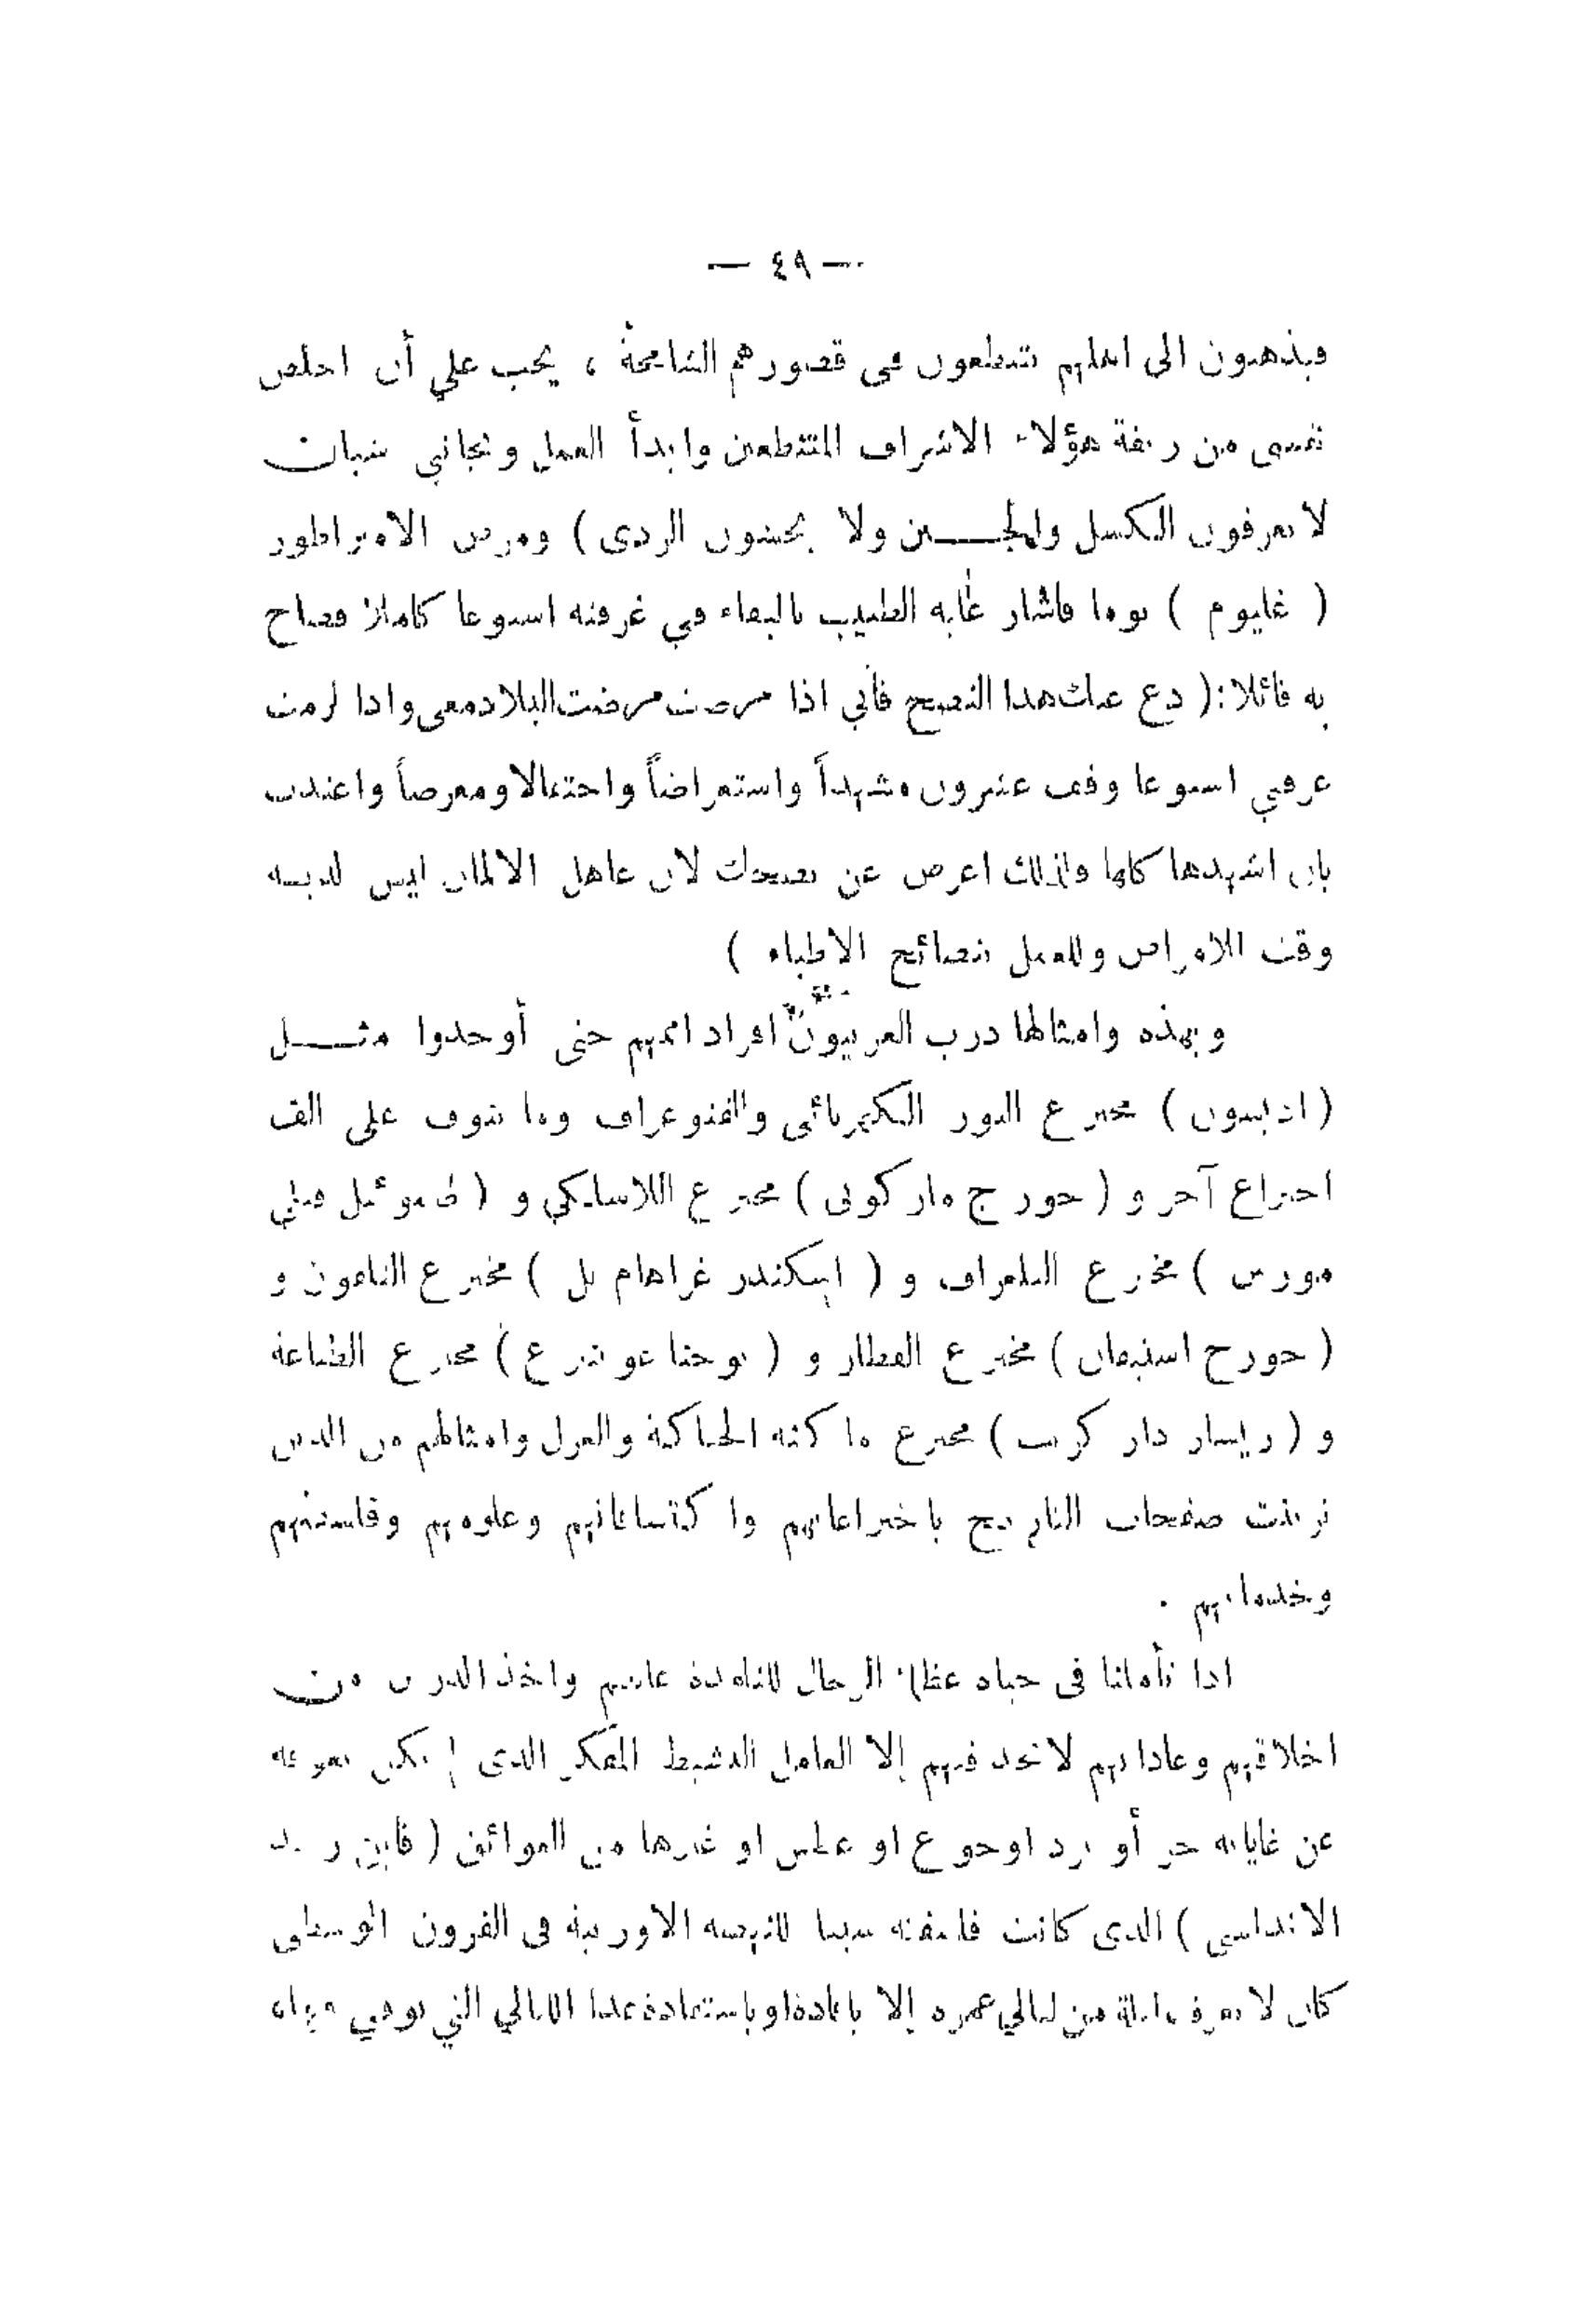 — ٤٩ —
فيذهبون الى اهليهم يتنطعون في قصورهم الشامخة ، يجب علي أن اخلص
نفسي من ربقة هؤلاء الاشراف المتنطعين وابدأ العمل وبجانبي شبان
لا يعرفون الكسل والجبن ولا يخشون الردى ) ومرض الامبراطور
( غليوم ) يوما فاشار عليه الطبيب بالبقاء في غرفته اسبوعا كاملا فصاح
به قائلا : ( دع عنك هذا النصح فأني اذا مرضت مرضت البلاد معي واذا لزمت
غرفتي اسبوعا وقف عشرون مشهداً واستعراضاً واحتفالا ومعرضاً واعتدت
بان اشهدها كلها ولذلك اعرض عن نصيحتك لان عاهل الالمان ليس لديه
وقت للامراض وللعمل بنصائح الاطباء )
وبهذه وامثالها درب الغربيون افراد اممهم حتى أوجدوا مثل
( اديسون ) مخترع النور الكهربائي والفنوغراف وما ينوف على الف
اختراع آخر و ( جورج ماركوني ) مخترع اللاسلكي و ( صموئيل فنلي
مورس ) مخترع التلغراف و ( اسكندر غراهام بل ) مخترع التلفون و
( جورج استيفان ) مخترع القطار و ( يوحنا غوتنبرغ ) مخترع الطباعة
و ( ريسار دار كريت ) مخترع ماكنة الحياكة والغزل وامثالهم من الذين
تزينت صفحات التاريخ باختراعاتهم واكتشافاتهم وعلومهم وفلسفتهم
وخدماتهم .
اذا تأملنا في حياة عظماء الرجال للتلمذة عليهم واخذ الدرس من
اخلاقهم وعاداتهم لا نجد فيهم إلا العامل النشيط المفكر الذي لم يكن يعوقه
عن غاياته حر أو برد او جوع او عطس او غيرها من العوائق ( فابن رشد
الاندلسي ) الذي كانت فلسفته سببا للنهضة الاوربية في القرون الوسطى
كان لا يعرف ليلة من ليالي عمره إلا بافادة او باستفادة عدا الليالي التي توفي فيها